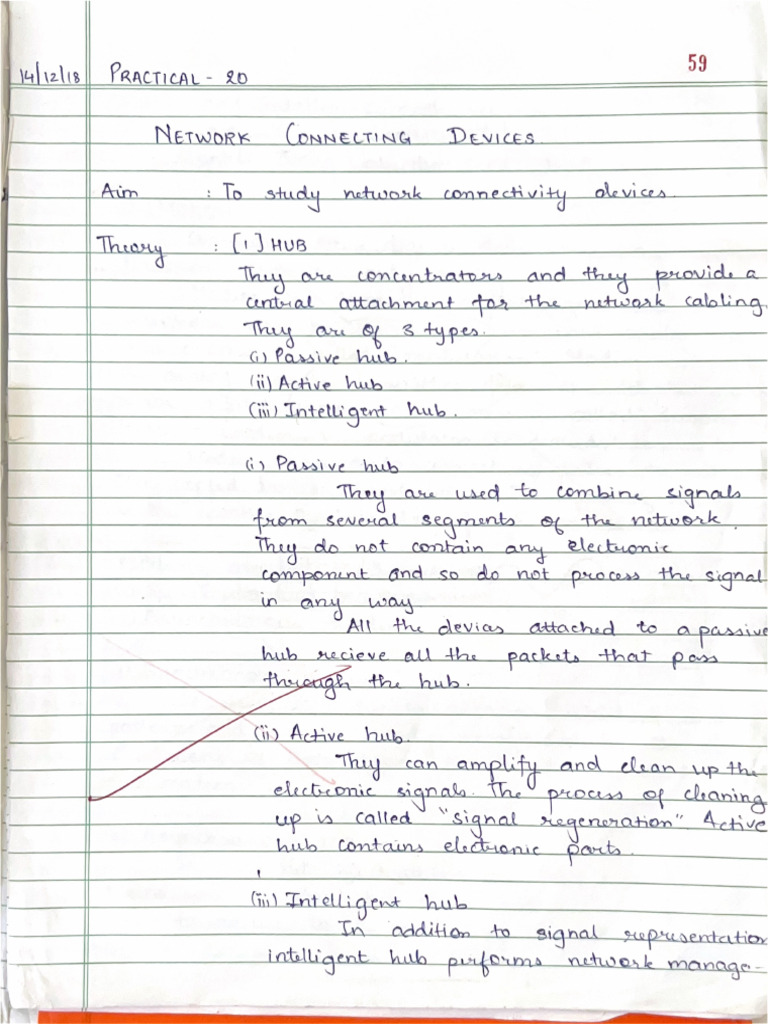 59
14/12/18 PRACTICAL - 20
NETWORK CONNECTING DEVICES.
Aim : To study network connectivity devices.
Theory : [1] HUB
They are concentrators and they provide a
central attachment for the network cabling.
They are of 3 types.
(i) Passive hub.
(ii) Active hub
(iii) Intelligent hub.
(i) Passive hub
They are used to combine signals
from several segments of the network.
They do not contain any electronic
component and so do not process the signal
in any way
All the devices attached to a passive
hub recieve all the packets that pass
through the hub.
(ii) Active hub.
They can amplify and clean up the
electronic signals. The process of cleaning
up is called "signal regeneration" Active
hub contains electronic parts.
(iii) Intelligent hub
In addition to signal representation
intelligent hub performs network manage-